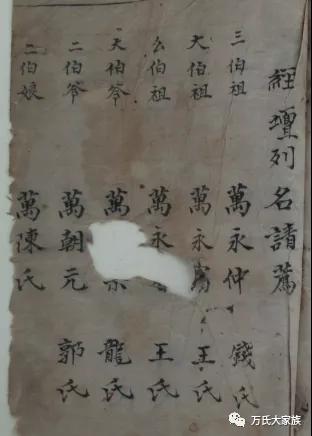 經壇列名請薦
三伯祖 萬永仲 錢氏
大伯祖 萬永 王氏
公伯祖 萬永 王氏
大伯爷 萬 龍氏
二伯爷 萬朝元 郭氏
二伯娘 萬陳氏
万氏大家族